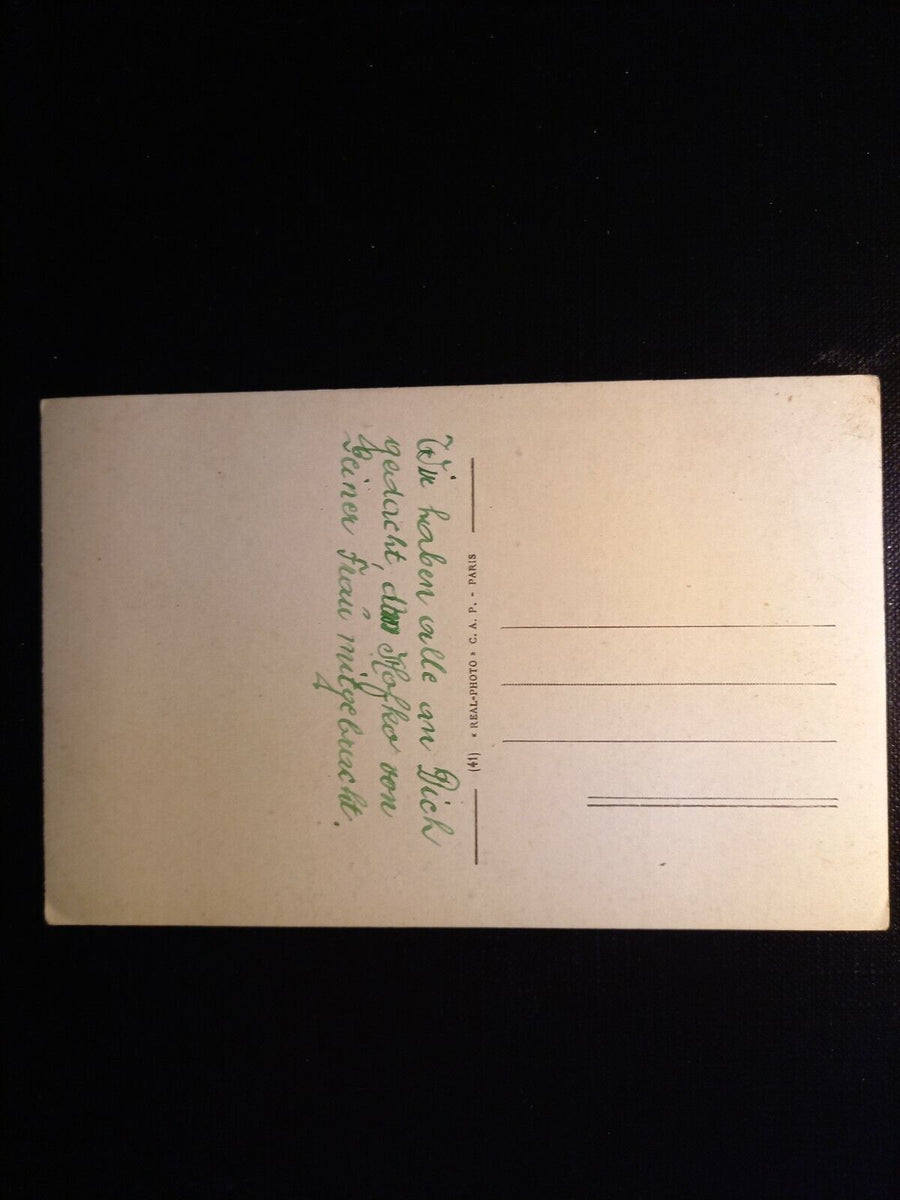 Wir haben alle an Dich
gedacht, Hofko von
Deiner Frau mitgebracht.
(41) « REAL-PHOTO » C. A. P. - PARIS